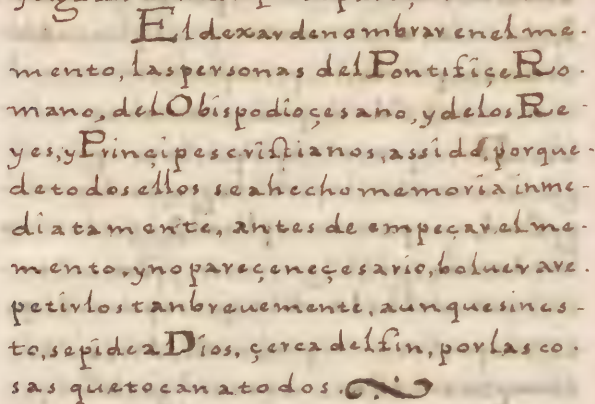 El dexar de nombrar en el me-
mento, las personas del Pontifiçe Ro-
mano, del Obispo dioçesano, y de los Re-
yes, y Prinçipes cristianos, assido, porque
de todos ellos se a hecho memoria inme-
diatamente, antes de empeçar, el me-
mento, y no pareçe neçesario, boluer a re-
petirlos tan breuemente, aunque sin es-
to, se pide a Dios, çerca del fin, por las co-
sas que tocan a todos.